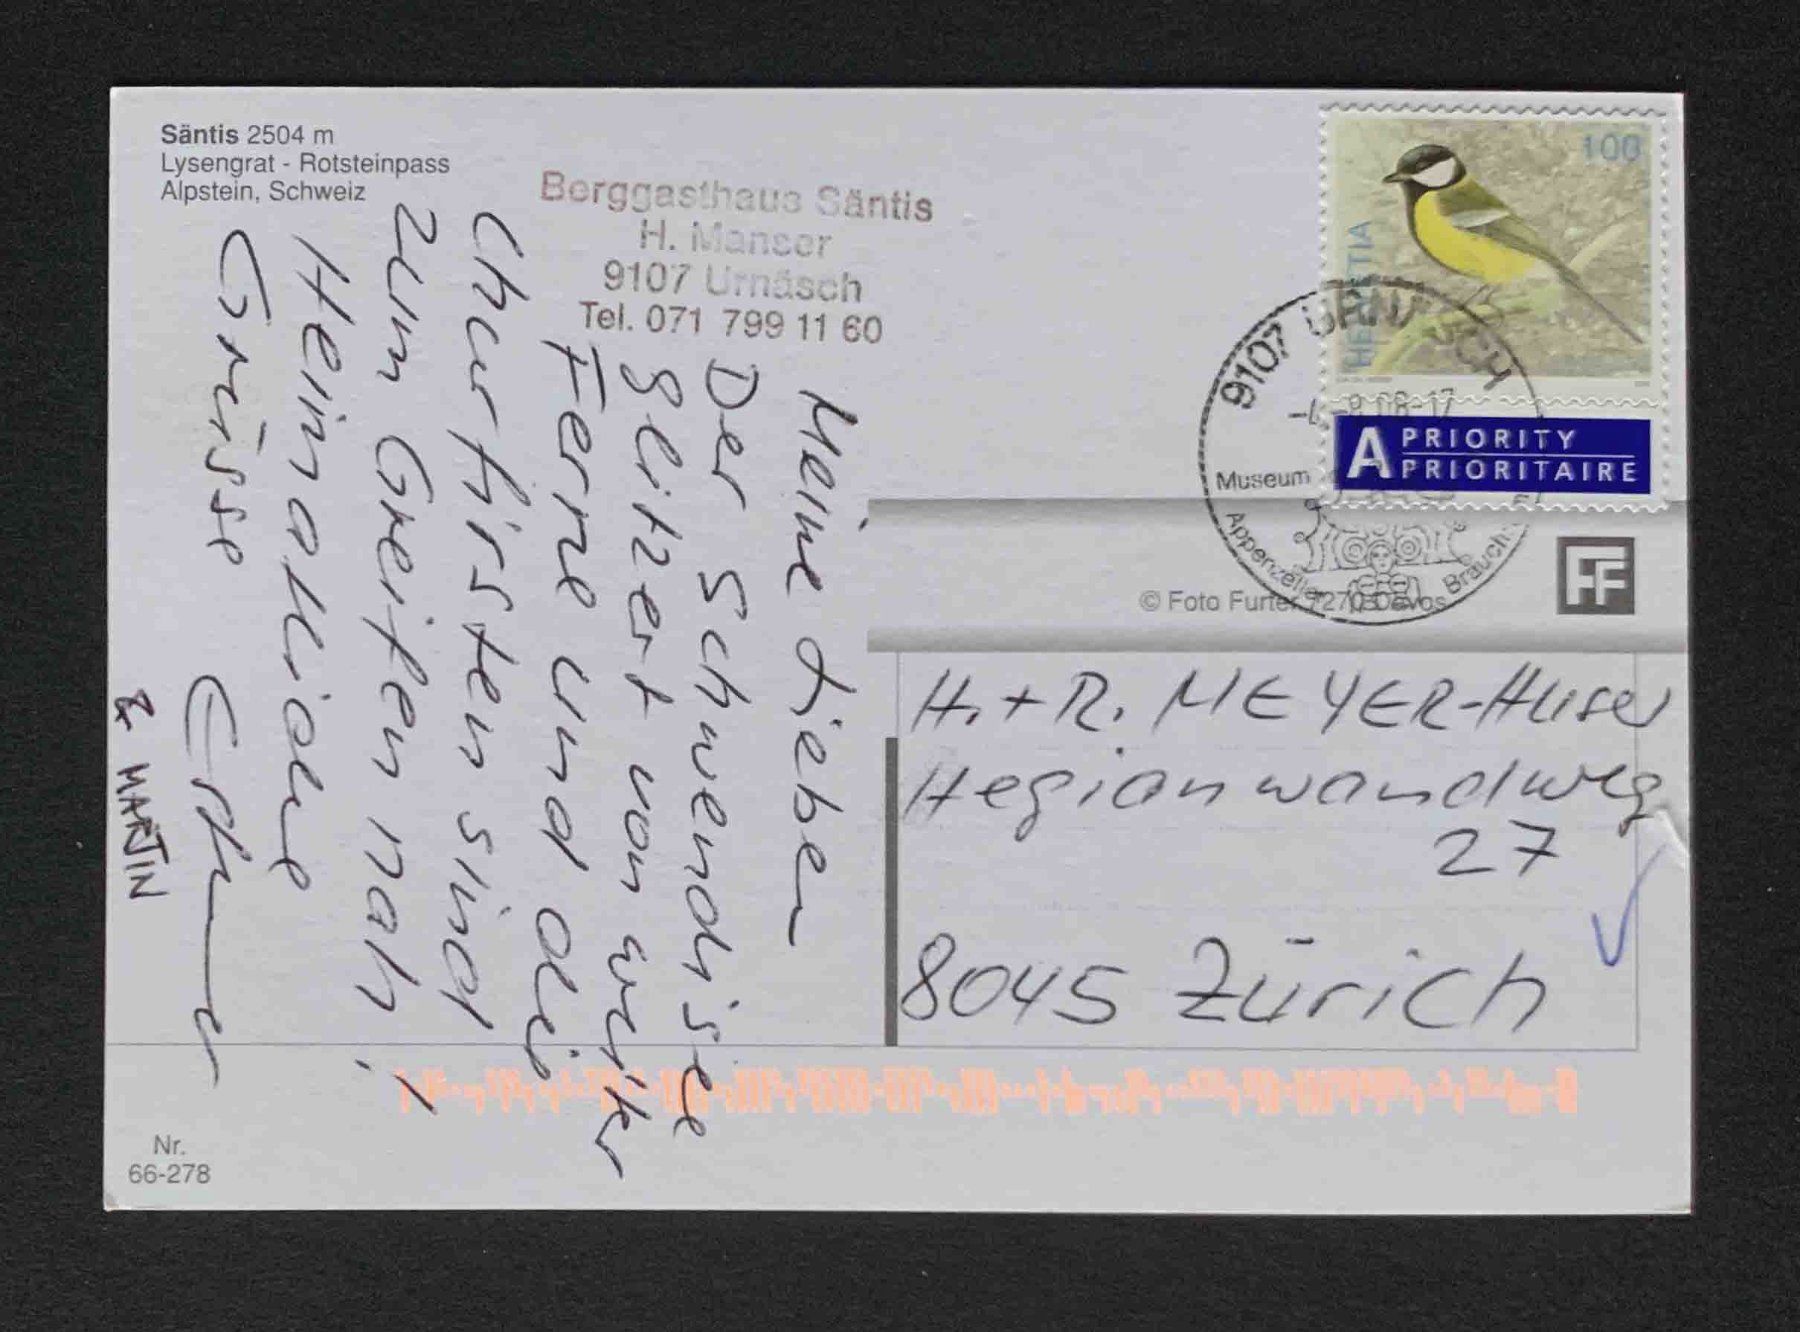 Säntis 2504 m
Lysengrat - Rotsteinpass
Alpstein, Schweiz
Berggasthaus Säntis
H. Manser
9107 Urnäsch
Tel. 071 799 11 60
Meine Lieben
Der Schwendisee
glitzert von weiter
Ferne und die
Churfirsten sind
zum Greifen nah!
Heimatliche
Grüsse
& MARTIN
100
HELVETIA
A PRIORITY
PRIORITAIRE
9107 URNÄSCH
Museum
Appenzeller Brauch
© Foto Furter 7270 Davos
FF
H. + R. MEYER-Huser
Hegianwandweg
27
8045 Zürich
Nr.
66-278